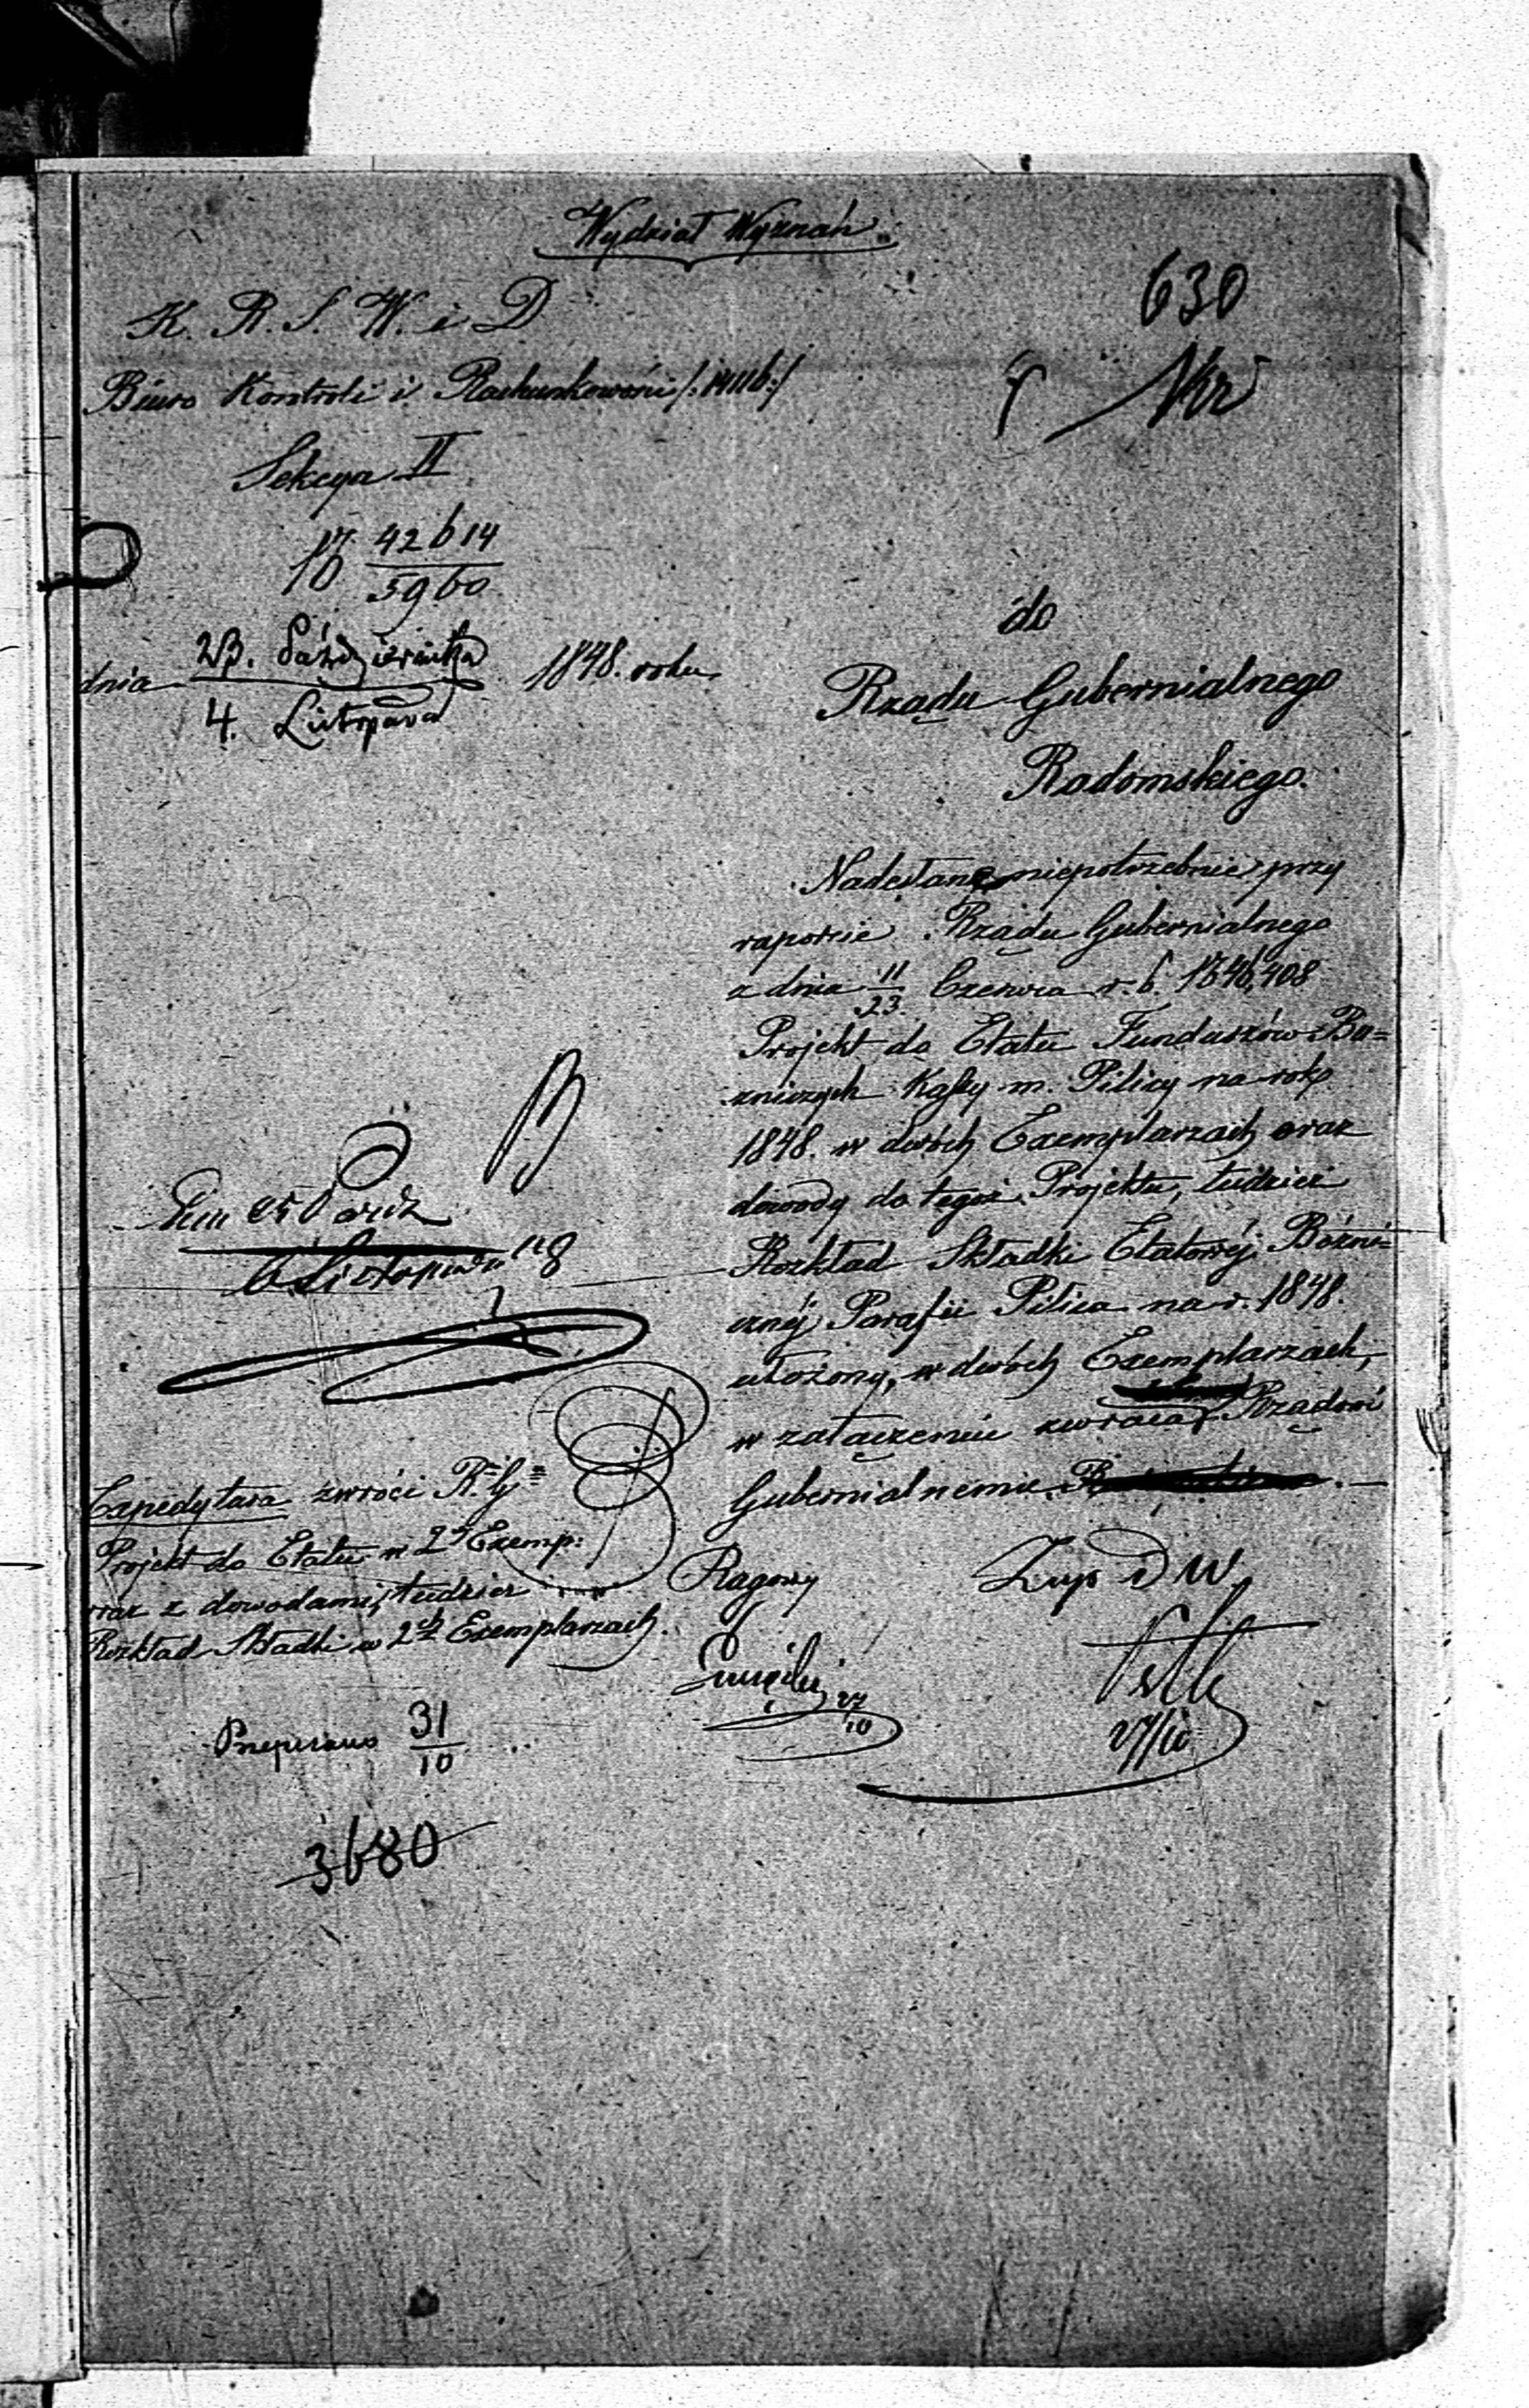 Wydział Wyznań.
630
K. R. S. W. i D
Biuro Kontroli i Rachunkowości
Sekcya II
42614
5960
dnia 23. Października 1848. roku
4. Listopada
do
Rządu Gubernialnego
Radomskiego.
Nadesłane niepotrzebnie przy
raporcie Rządu Gubernialnego
z dnia 11/23. Czerwca r. b.
Projekt do Etatu Funduszów Bo=
zniczych Kassy m. Pilicy na rok
1848. w dwóch Exemplarzach oraz
dowody do tegoż Projektu, tudzież
Rozkład Składki Etatowéj Bóżni=
cznéj Parafii Pilica na r. 1848.
ułożony, w dwóch Exemplarzach,
w załączeniu zwraca Rządowi
Gubernialnemu
6 Listopada
Expedytura zwróci R. G.
Projekt do Etatu w 2ch Exemp:
oraz z dowodami, tudzież
Rozkład Składki w 2ch Exemplarzach.
Przepisano 31/10
27/10
27/10
3680